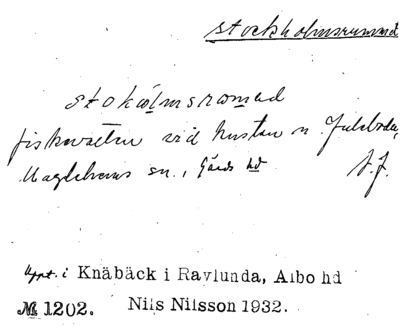 Stockholmsrummad
stokolmsromad
fiskevatten vid kusten n. Juleboda,
Maglehems sn., Gärds hd
Uppt. i Knäbäck i Ravlunda, Albo hd
№ 1202. Nils Nilsson 1932.